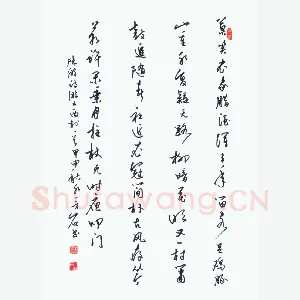 莫笑农家腊酒渾丰年留客足鸡豚
山重水复疑无路柳暗花明又一村箫
鼓追随春社近衣冠简朴古风存从今
若許闲乘月拄杖无时夜叩门
陆游诗游山西村
甲申秋
Shufawang.CN